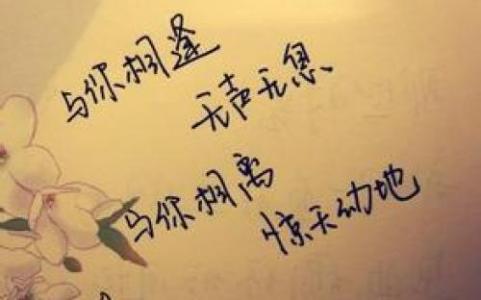 与你相逢
无声无息
与你相离
惊天动地